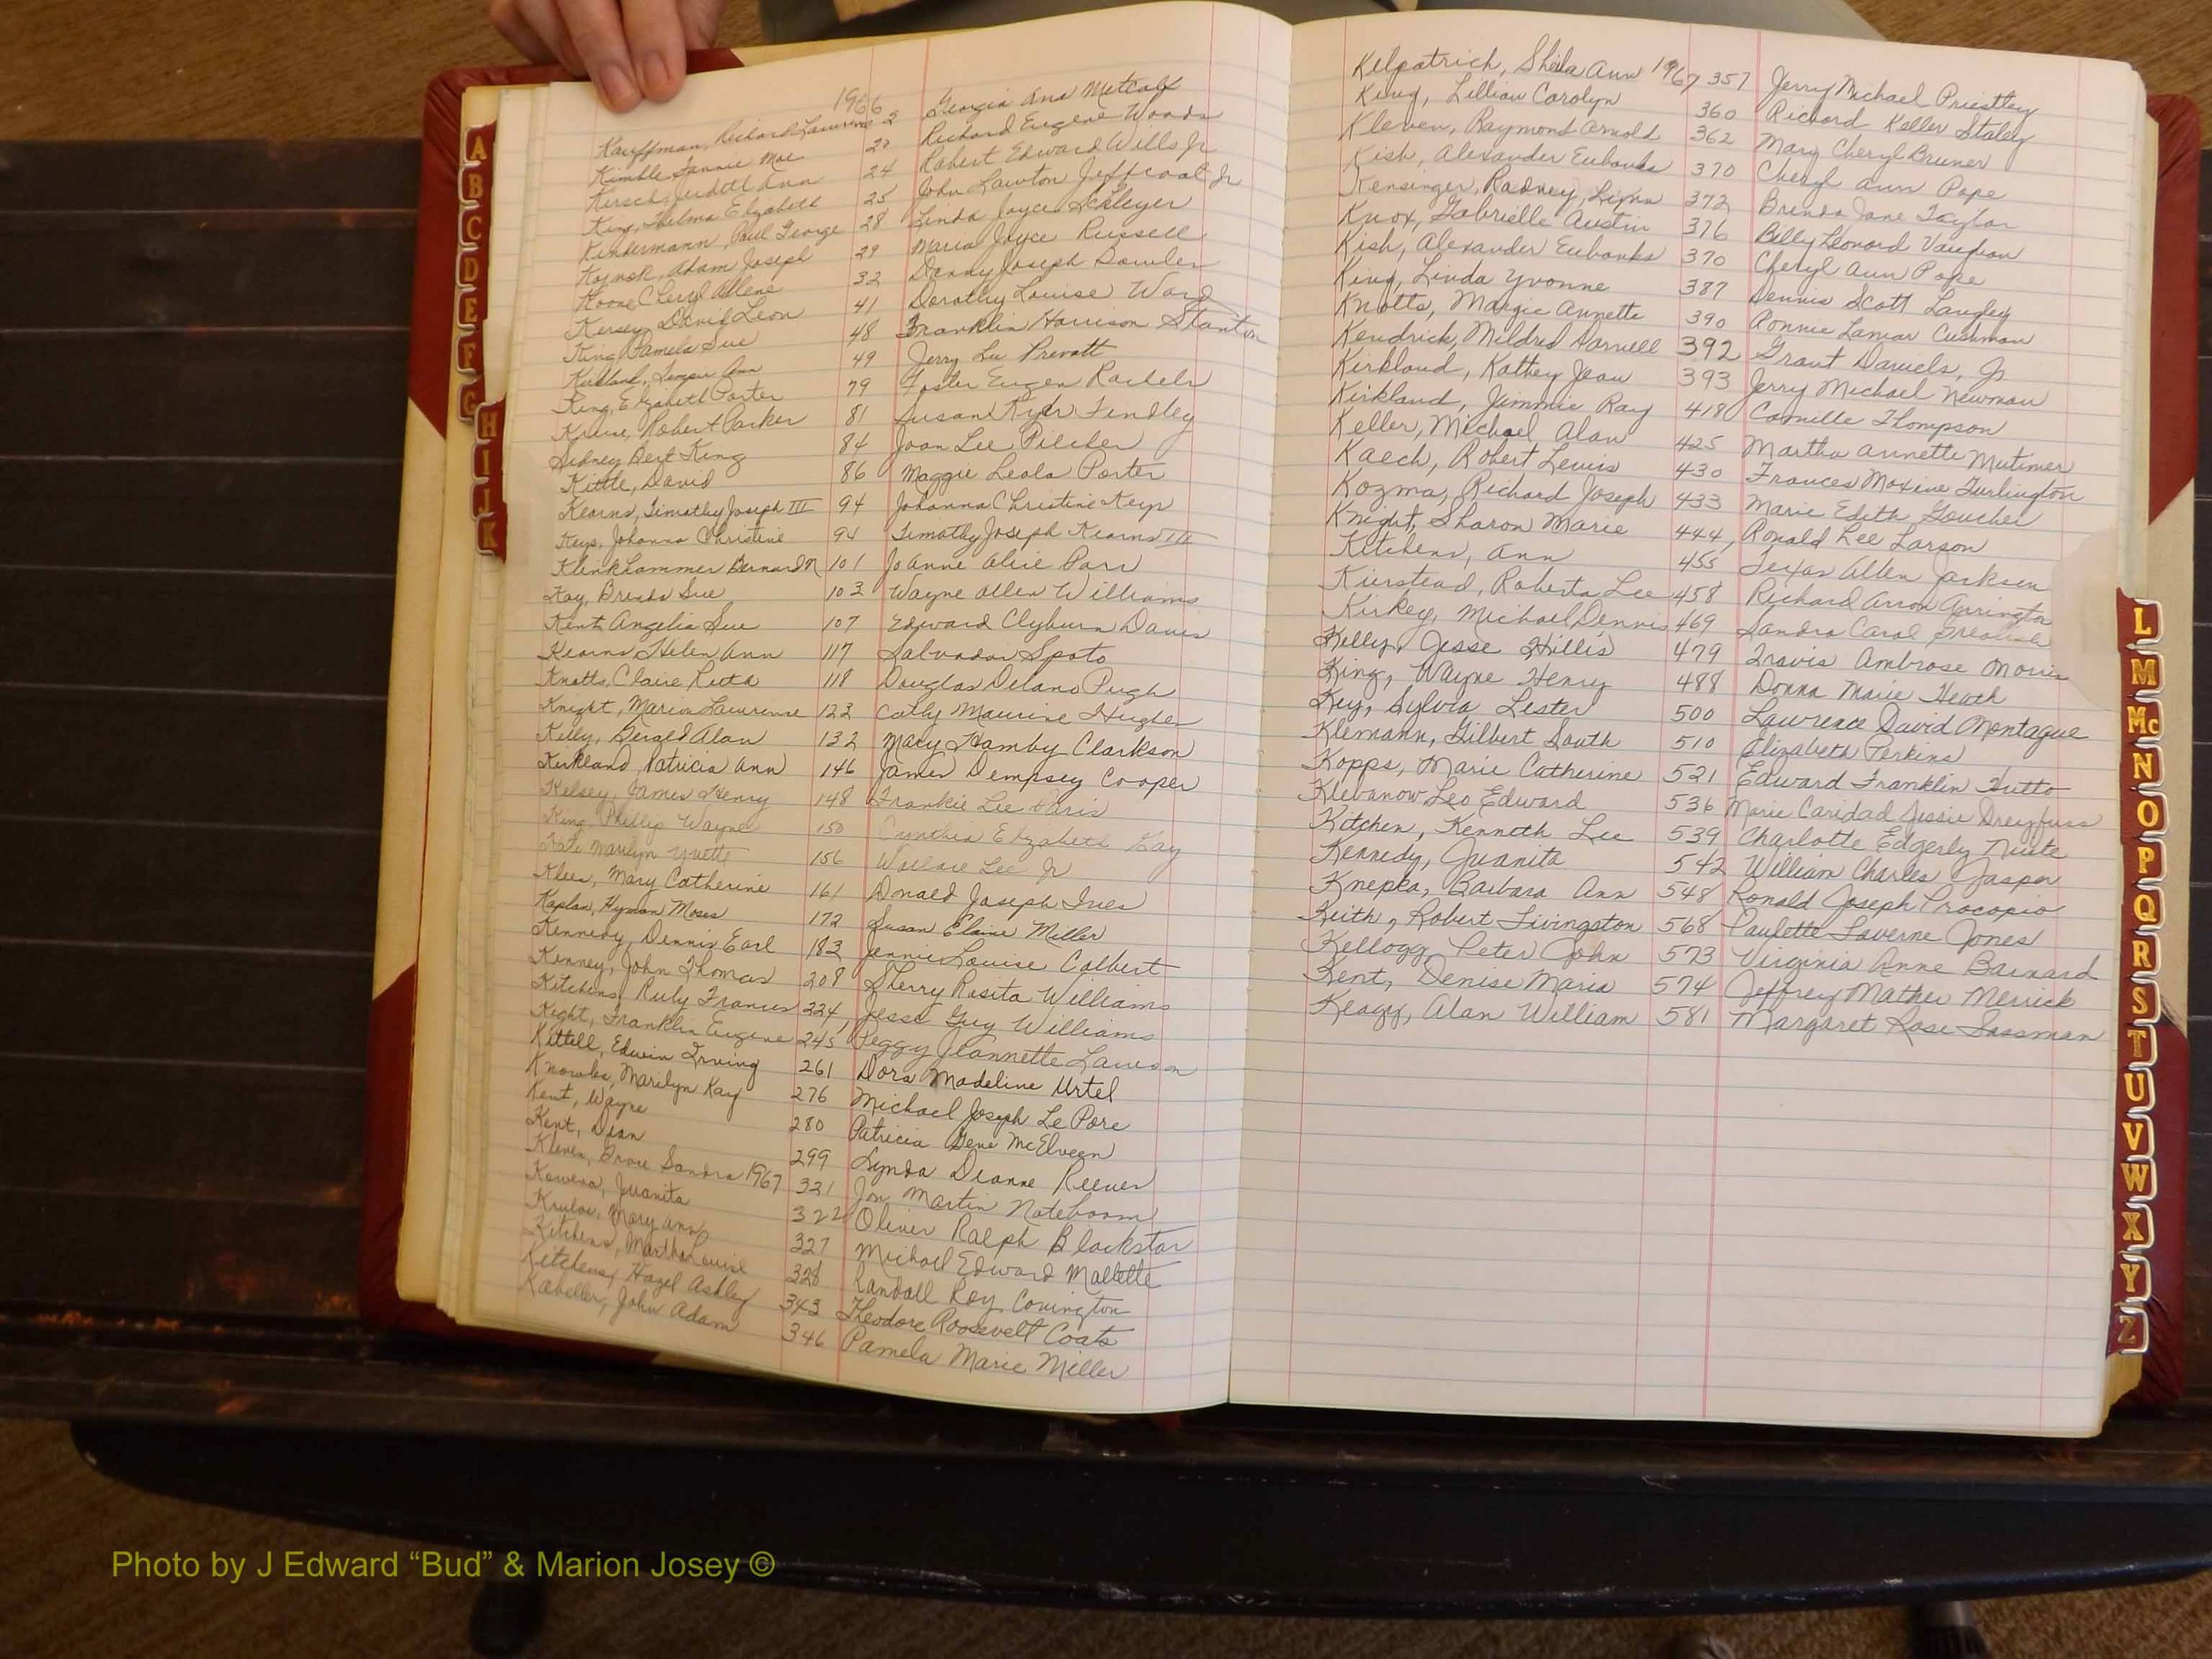 1966
Kauffman, Richard Lawrence 2 Georgia Ana Metcalf
Kimble Fannie Mae 20 Richard Eugene Woods
Kirsch, Judith Ann 24 Robert Edward Wills Jr
King, Thelma Elizabeth 25 John Lawton Jeffcoat Jr
Kindermann, Paul George 28 Linda Joyce Schleyer
Adam Joseph 29 Maria Joyce Russell
Cheryl Allene 32 Danny Joseph Bowler
Kersey, David Leon 41 Dorothy Louise Ward
King Pamela Sue 48 Franklin Harrison Stanton
Kirkland, Ann 49 Jerry Lee Prevatt
King, Elizabeth Porter 79 Foster Eugen
Kruse, Robert Parker 81 Susan Findley
Sidney Bert King 84 Joan Lee Pilcher
Kittle, David 86 Maggie Leola Porter
Kearns, Timothy Joseph III 94 Johanna Christine Keys
Keys, Johanna Christine 94 Timothy Joseph Kearns III
Klinkhammer Bernard N 101 JoAnne Alice Parr
Kay, Brenda Sue 103 Wayne Allen Williams
Kent Angelia Sue 107 Edward Clyburn Davis
Kearns Helen Ann 117 Salvador Spoto
Knotts, Claire Rita 118 Douglas Delano Pugh
Knight, Marion Lawrence 123 Cathy Maurine Hughes
Kelly, Gerald Alan 132 Mary Hamby Clarkson
Kirkland, Patricia Ann 146 James Dempsey Cooper
Kelsey, James Henry 148 Frankie Lee Paris
King, Phillip Wayne 150 Cynthia Elizabeth Kay
Marilyn Yvette 156 Wallace Lee Jr
Klees, Mary Catherine 161 Donald Joseph Ives
Kaplan, Hyman Moses 172 Susan Elaine Miller
Kennedy, Dennis Earl 183 Jennie Louise Colbert
Kenney, John Thomas 208 Sherry Rosita Williams
Kitchens, Ruby Frances 224, Jesse Guy Williams
Kight, Franklin Eugene 245 Peggy Jeannette Lawson
Kittell, Edwin Irving 261 Dora Madeline Urtel
Knowles, Marilyn Kay 276 Michael Joseph LePore
Kent, Wayne 280 Patricia Gene McElveen
Kent, Dean 299 Lynda Dianne Reeves
Kleven, Sandra 1967 321 Jon Martin Noteboom
Juanita 322 Oliver Ralph Blackstar
Mary Ann 327 Michael Edward Mallette
Kitchens, Martha Louise 328 Randall Roy Covington
Kitchens, Hazel Ashley 343 Theodore Roosevelt Coats
John Adam 346 Pamela Marie Miller
Kilpatrich, Sheila Ann 1967 357 Jerry Michael Priestley
King, Lillian Carolyn 360 Richard Keller Staley
Kleven, Raymond Arnold 362 Mary Cheryl Bruner
Kish, Alexander Eubanks 370 Cheryl Ann Pope
Kensinger, Radney Lynn 372 Brenda Jane Taylor
Knox, Gabrielle Austin 376 Billy Leonard Vaughan
Kish, Alexander Eubanks 370 Cheryl Ann Pope
King, Linda Yvonne 387 Dennis Scott Langley
Knotts, Margie Annette 390 Ronnie Lamar Cushman
Kendrick, Mildred Darnell 392 Grant Daniels, Jr
Kirkland, Kathey Jean 393 Jerry Michael Newman
Kirkland, Jimmie Ray 418 Camille Thompson
Keller, Michael Alan 425 Martha Annette Mutimer
Kaech, Robert Lewis 430 Frances Maxine Turlington
Kozma, Richard Joseph 433 Marie Edith Goucher
Knight, Sharon Marie 444, Ronald Lee Larson
Kitchens, Ann 455 Texas Allen Jackson
Kierstead, Roberta Lee 458 Richard Arron Arrington
Kirkey, Michael Dennis 469 Sandra Carol
Kelly, Jesse Hillis 479 Travis Ambrose Morris
King, Wayne Henry 488 Donna Marie Heath
Key, Sylvia Lester 500 Lawrence David Montague
Klemann, Gilbert South 510 Elizabeth Perkins
Kopps, Marie Catherine 521 Edward Franklin Hutto
Klebanow Leo Edward 536 Marie Caridad Jessie Dreyfuss
Kitchen, Kenneth Lee 539 Charlotte Edgerly Niete
Kennedy, Juanita 542 William Charles Jasper
Knepka, Barbara Ann 548 Ronald Joseph Procopio
Keith, Robert Livingston 568 Paulette Laverne Jones
Kellogg, Peter John 573 Virginia Anne Barnard
Kent, Denise Maria 574 Jeffrey Mather Merrick
Keagy, Alan William 581 Margaret Rose Sossman
A
B
C
D
E
F
G
H
I
J
K
L
M
Mc
N
O
P
Q
R
S
T
U
V
W
X
Y
Z
Photo by J Edward “Bud” & Marion Josey ©